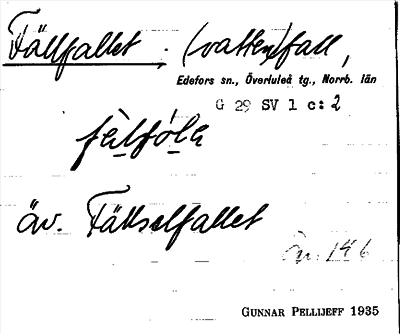 Fällfallet ; (vatten)fall,
Edefors sn., Överluleå tg., Norrb. län
G 29 SV 1 c: 2
fèlfóla
äv. Fällselfallet
än. 146
GUNNAR PELLIJEFF 1935